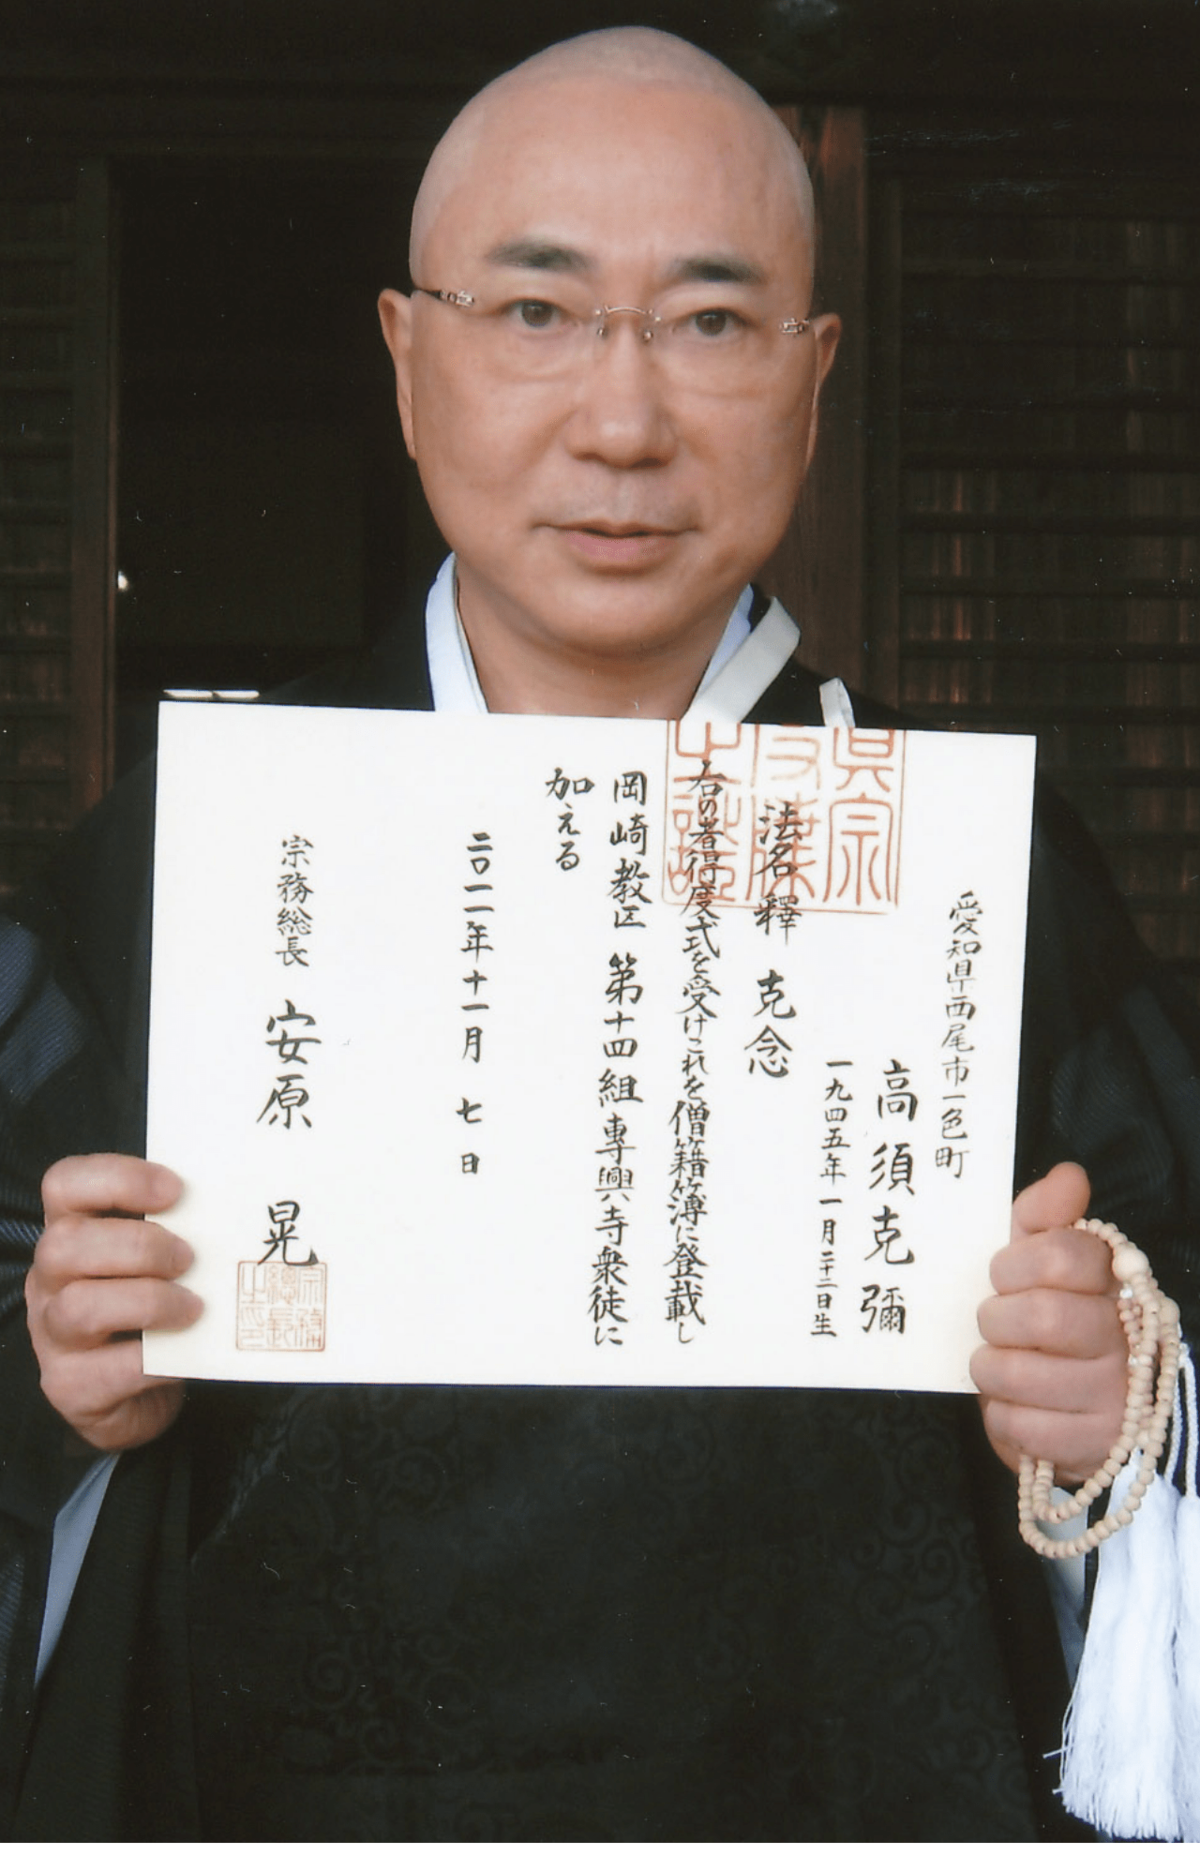 愛知県西尾市一色町
高須克彌
一九四五年一月二十二日生
法名釋 克念
右の者得度式を受けこれを僧籍簿に登載し
岡崎教区 第十四組專興寺衆徒に
加える
二〇一一年十一月 七 日
宗務総長 安原 晃
宗務總長之印